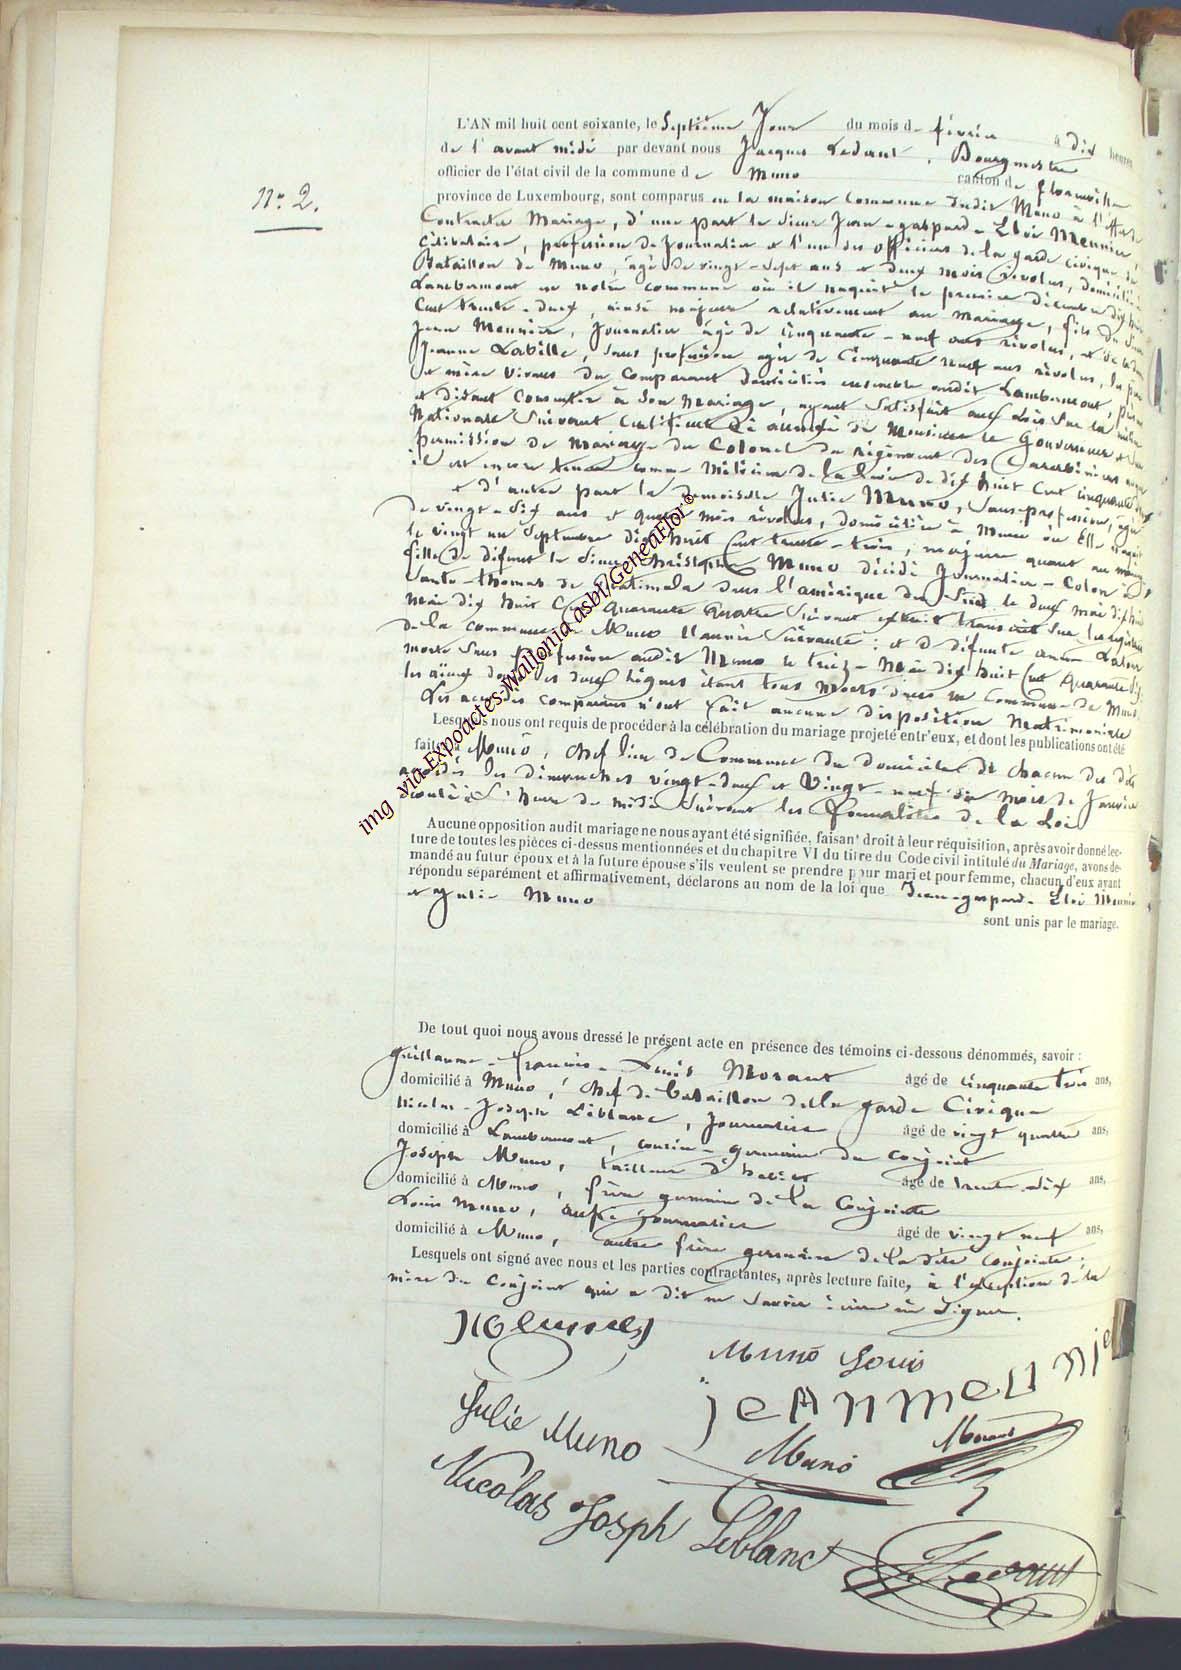 N° 2.
L'AN mil huit cent soixante, le Septième Jour du mois de février à dix heures
de l'avant midi par devant nous Jacques Ledant, Bourgmestre
officier de l'état civil de la commune de Muno canton de florenville
province de Luxembourg, sont comparus en la maison Commune dudit Muno à l'effet de
Contracter Mariage, d'une part le Sieur Jean-gaspard-Eloi Meunier,
Célibataire, profession de Journalier et l'un des officiers de la garde civique du
Bataillon de Muno, âgé de vingt-sept ans et deux mois révolus, domicilié à
Lambermont en notre commune où il naquit le premier décembre dix huit
Cent trente-deux, ainsi majeur relativement au mariage, fils du Sieur
Jean Meunier, Journalier âgé de Cinquante-neuf ans révolus, et de la dame
Jeanne Labille, sans profession âgée de Cinquante neuf ans révolus, les père
et mère vivans du Comparant domiciliés ensemble audit Lambermont, présens
et disant Consentir à son Mariage, ayant Satisfait aux Lois sur la milice
Nationale Suivant Certificat de Monsieur le Gouverneur et
permission de Mariage du Colonel du régiment des Carabiniers
il est encore tenu comme Milicien de la levée de dix huit Cent Cinquante
et d'autre part la demoiselle Julie Muno, sans profession, âgée
de vingt-six ans et quatre mois révolus, domiciliée à Muno où Elle naquit
le vingt un Septembre dix huit Cent trente-trois, majeure quant au mariage
fille de défunt le Sieur Christophe Muno décédé Journalier-Colon à
Santo-thomas de Guatimala dans l'amérique du Sud le deux mai dix huit
Cent Quarante Quatre Suivant extrait transcrit sur les registres
de la commune de Muno l'année Suivante; et de défunte
morte sans profession audit Muno le treize Mai dix huit Cent Quarante Six
les aïeux des deux lignes étant tous morts en Commune de Muno.
Les comparans n'ont fait aucune disposition Matrimoniale
Lesquels nous ont requis de procéder à la célébration du mariage projeté entr'eux, et dont les publications ont été
faites à Muno, chef lieu de Commune du domicile de chacun des dits
les dimanches vingt-deux et Vingt-neuf du mois de Janvier
à l'heure de midi Suivant les formalités de la Loi
Aucune opposition audit mariage ne nous ayant été signifiée, faisant droit à leur réquisition, après avoir donné lec-
ture de toutes les pièces ci-dessus mentionnées et du chapitre VI du titre du Code civil intitulé du Mariage, avons de-
mandé au futur époux et à la future épouse s'ils veulent se prendre pour mari et pour femme, chacun d'eux ayant
répondu séparément et affirmativement, déclarons au nom de la loi que Jean-gaspard-Eloi Meunier
et Julie Muno
sont unis par le mariage.
De tout quoi nous avons dressé le présent acte en présence des témoins ci-dessous dénommés, savoir :
Guillaume-françois-Louis Morant âgé de cinquante trois ans,
domicilié à Muno, chef de bataillon de la garde Civique
Nicolas-Joseph Leblanc, Journalier âgé de vingt quatre ans,
domicilié à Lambermont, cousin-germain du conjoint
Joseph Muno, tailleur d'habits âgé de trente-six ans,
domicilié à Muno, frère germain de la Conjointe
Louis Muno, aussi Journalier âgé de vingt neuf ans,
domicilié à Muno, autre frère germain de la dite conjointe;
Lesquels ont signé avec nous et les parties contractantes, après lecture faite, à l'exception de la
mère du Conjoint qui a dit ne Savoir écrire ni Signer.
Meunier
Muno Louis
jeAn meunie
Julie Muno
Muno
Morant
Nicolas Josph Leblanc
J Ledant
img via Expoactes-Wallonia asbl/GeneaFlor©